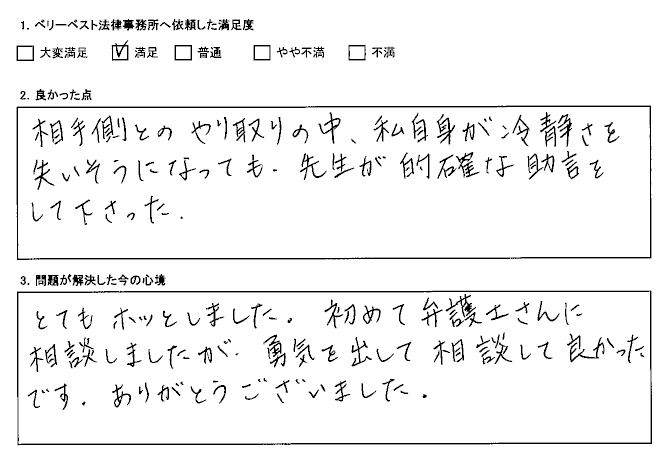 1. ベリーベスト法律事務所へ依頼した満足度
□ 大変満足 ☑ 満足 □ 普通 □ やや不満 □ 不満
2. 良かった点
相手側とのやり取りの中、私自身が冷静さを
失いそうになっても、先生が的確な助言を
して下さった.
3. 問題が解決した今の心境
とてもホッとしました。初めて弁護士さんに
相談しましたが、勇気を出して相談して良かった
です。ありがとうございました。